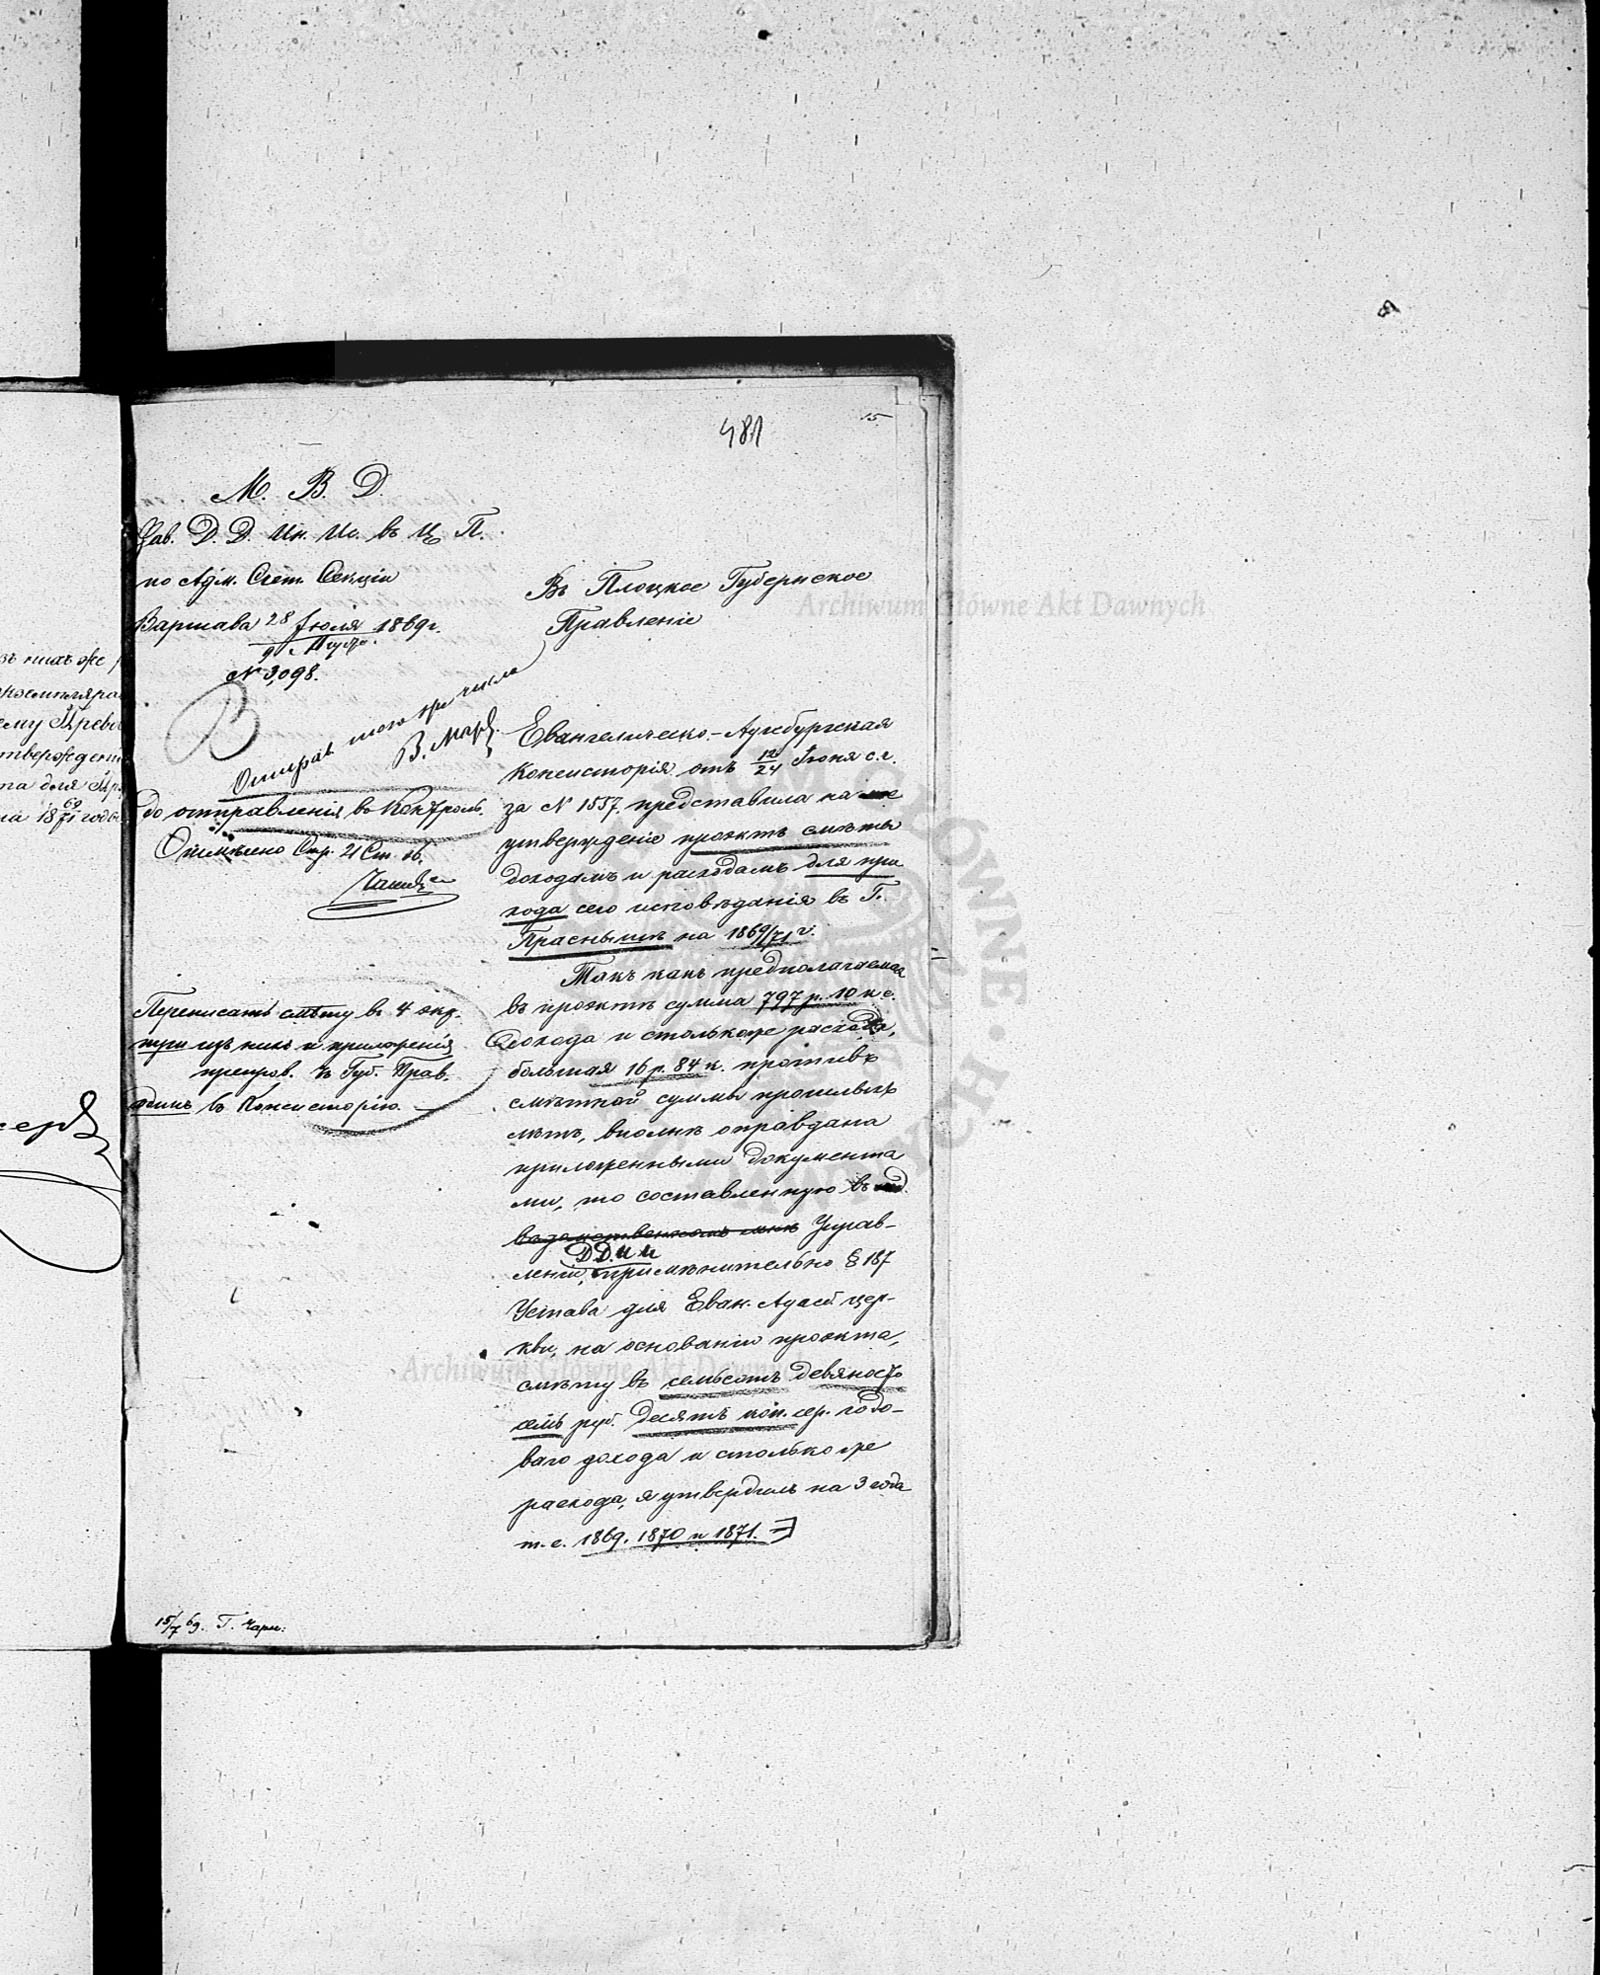 481
15
М. В. Д.
Зав. Д. Д. Ин. Ис. въ Ц. П.
по Адм. Счет. Секціи
Варшава 28 Іюля 1869 г.
9 Авгус.
№ 3,098.
Въ Плоцкое Губернское
Правленіе
В
Отправ. того же числа
До отправленія въ Контроль.
Отмѣчено Стр. 21 Ст. 16.
Переписать смѣту въ 4 экз.
три изъ нихъ и приложенія
препров. въ Губ. Прав.
одинъ въ Консисторію.
Евангелическо-Аугсбургская
Консисторія отъ 12/24 Іюня с. г.
за № 1557. представила на
утвержденіе проэктъ смѣты
доходамъ и расходамъ для при
хода сего исповѣданія въ Г.
Праснышѣ на 1869/71 г.
Такъ какъ предполагаемая
въ проэктѣ сумма 797 р. 10 к. с.
дохода и столькоже расхода,
большая 16 р. 84 к. противъ
смѣтной суммы прошлыхъ
лѣтъ, вполнѣ оправдана
приложенными документа
ми, то составленную въ
Управ-
Д. Д. И. И.
леніи, примѣнительно § 187
Устава для Еван. Аугсб. цер-
кви, на основаніи проэкта,
смѣту въ семьсотъ девяносто
семь руб. десять коп. сер. годо-
ваго дохода и столько же
расхода, я утвердилъ на 3 года
т. е. 1869, 1870 и 1871.
15/7 69. Г. Чарн:
изъ нихъ же
1869/71 годы
Archiwum Główne Akt Dawnych
Archiwum Główne Akt Dawnych